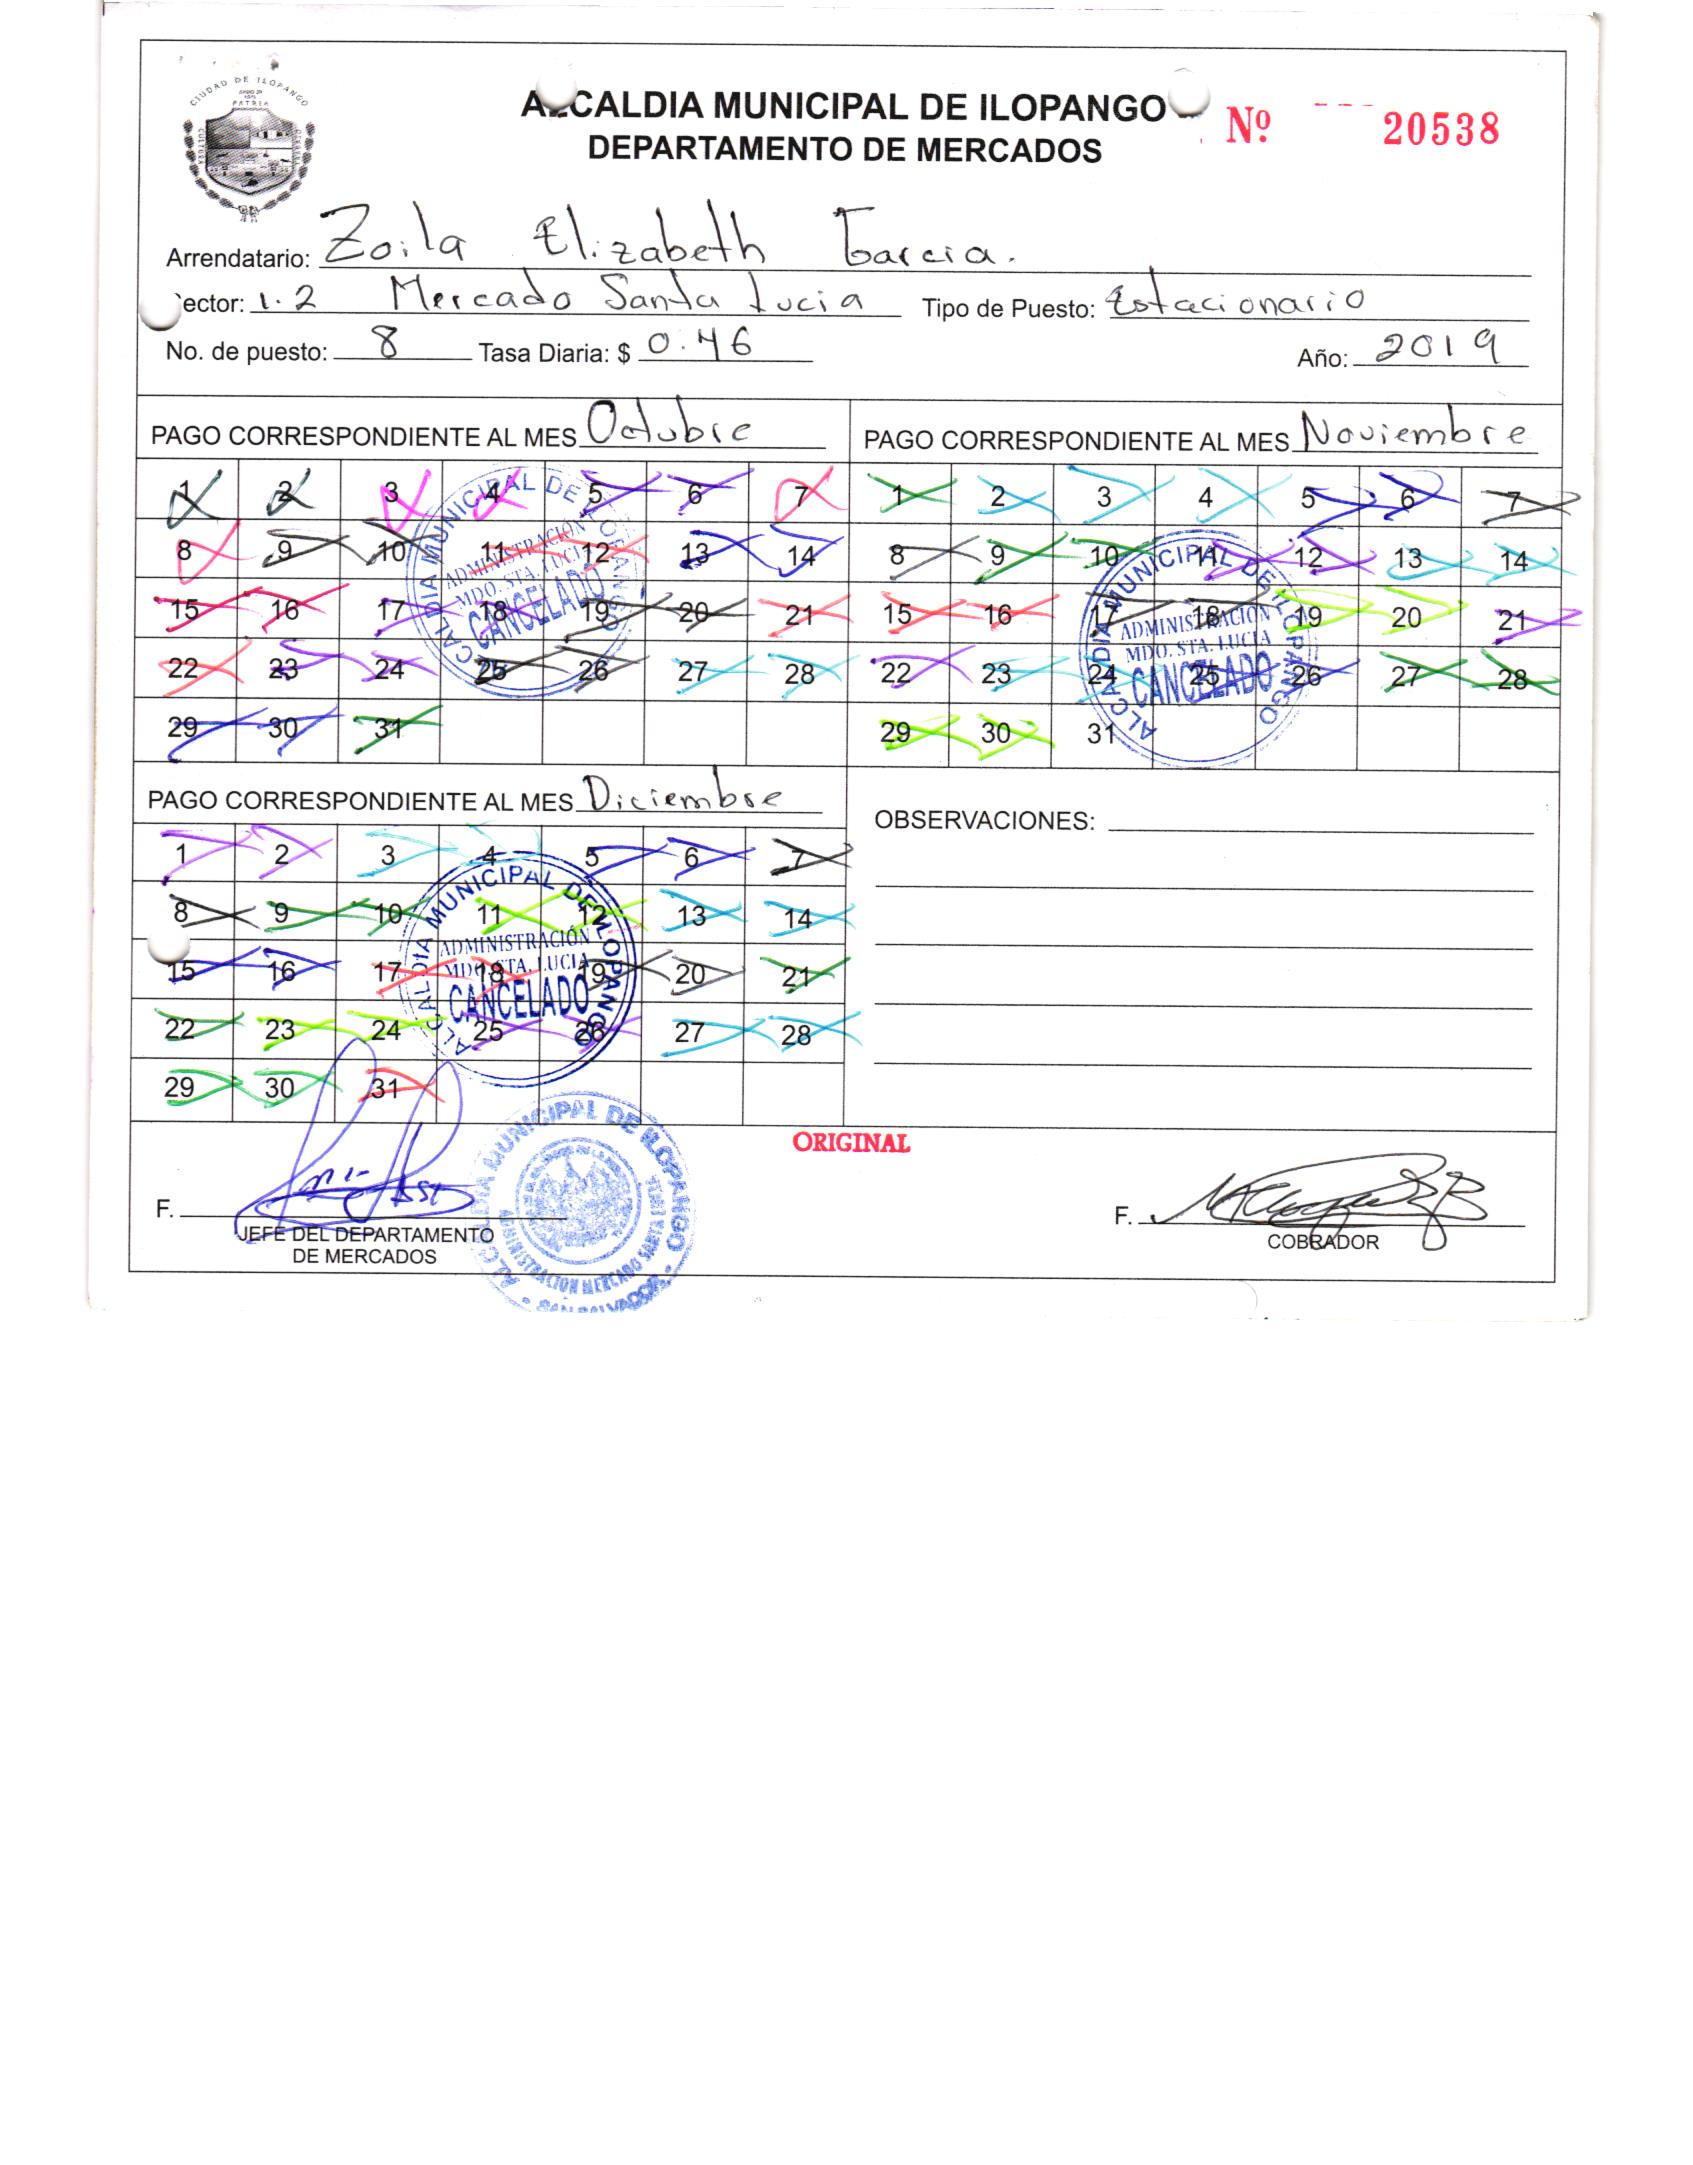 CIUDAD DE ILOPANGO
PATRIA
CULTURA
ALCALDIA MUNICIPAL DE ILOPANGO
Nº 20538
DEPARTAMENTO DE MERCADOS
Arrendatario: Zoila Elizabeth Garcia.
ector: 1.2 Mercado Santa Lucia Tipo de Puesto: Estacionario
No. de puesto: 8 Tasa Diaria: $ 0.46 Año: 2019
PAGO CORRESPONDIENTE AL MES Octubre
1 2 3 4 5 6 7
8 9 10 11 12 13 14
15 16 17 18 19 20 21
22 23 24 25 26 27 28
29 30 31
ALCALDIA MUNICIPAL DE ILOPANGO
ADMINISTRACIÓN
MDO. STA. LUCIA
CANCELADO
PAGO CORRESPONDIENTE AL MES Noviembre
1 2 3 4 5 6 7
8 9 10 11 12 13 14
15 16 17 18 19 20 21
22 23 24 25 26 27 28
29 30 31
ALCALDIA MUNICIPAL DE ILOPANGO
ADMINISTRACIÓN
MDO. STA. LUCIA
CANCELADO
PAGO CORRESPONDIENTE AL MES Diciembre
1 2 3 4 5 6 7
8 9 10 11 12 13 14
15 16 17 18 19 20 21
22 23 24 25 26 27 28
29 30 31
ALCALDIA MUNICIPAL DE ILOPANGO
ADMINISTRACIÓN
MDO. STA. LUCIA
CANCELADO
OBSERVACIONES:
ORIGINAL
F.
JEFE DEL DEPARTAMENTO
DE MERCADOS
ALCALDIA MUNICIPAL DE ILOPANGO
ADMINISTRACION MERCADO SANTA LUCIA
SAN SALVADOR
F.
COBRADOR